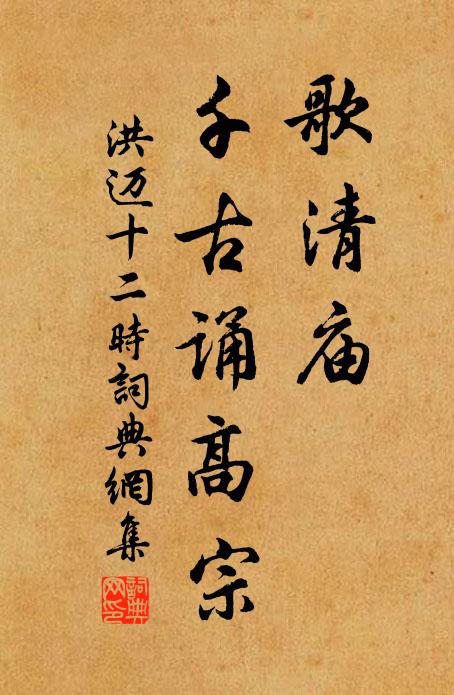 歌清庙
千古诵高宗
洪迈十二時詞典網集
詞典网印